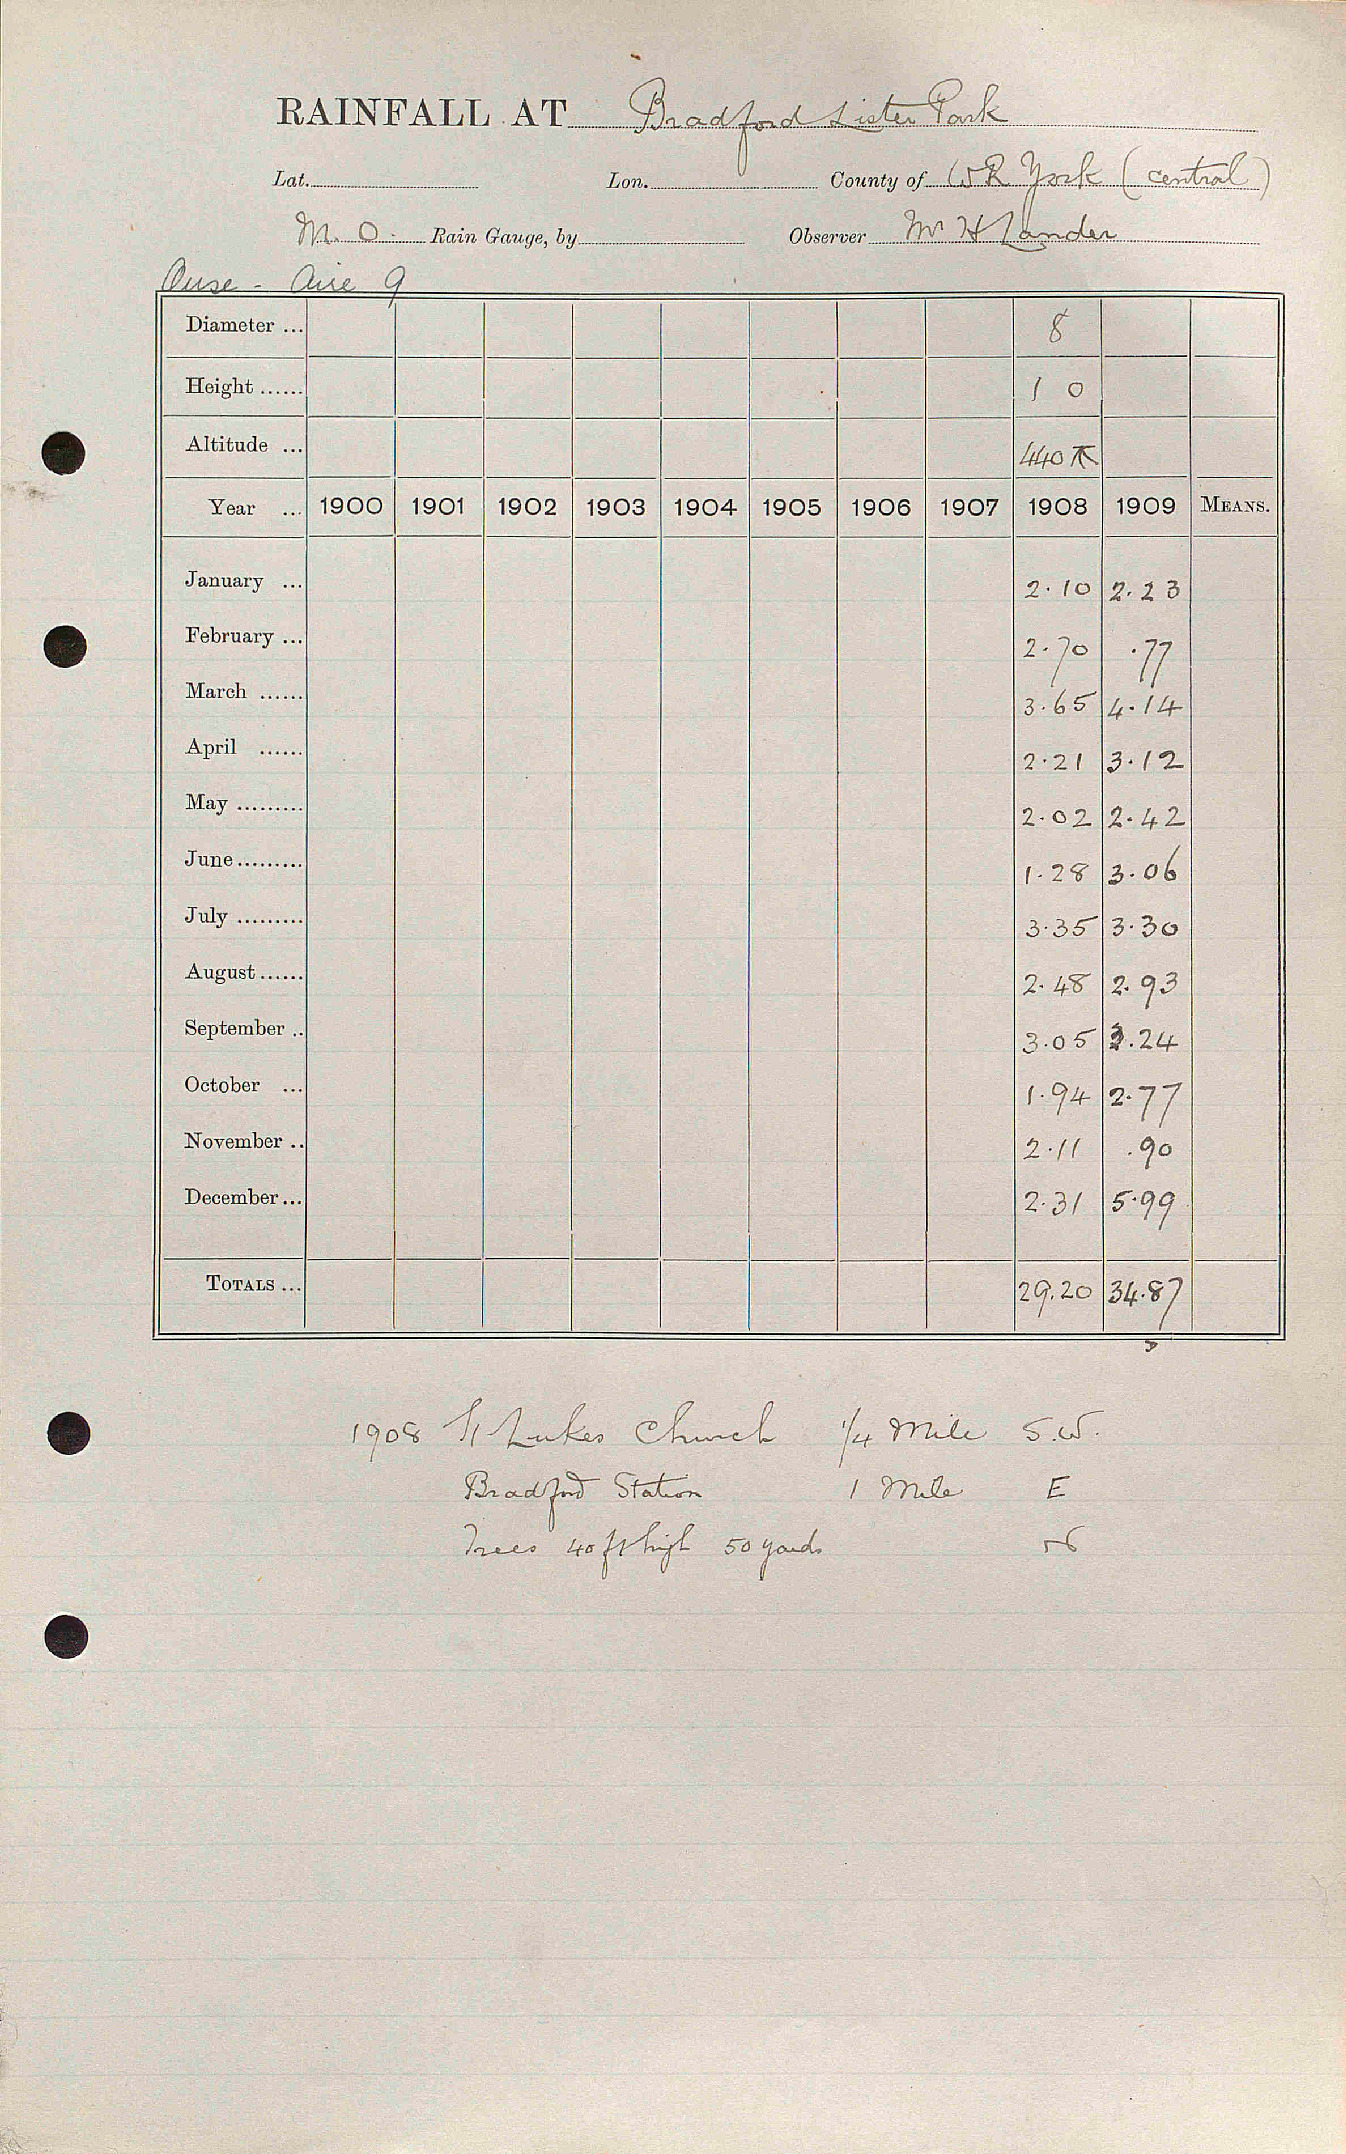 RAINFALL AT Bradford Lister Park
Lat. Lon. County of W R York (central)
M. O. Rain Gauge, by Observer Mr H Lander
Ouse - Aire 9
Diameter ... 8
Height ...... 1 0
Altitude ... 440
Year ... 1900 1901 1902 1903 1904 1905 1906 1907 1908 1909 MEANS.
January ... 2.10 2.23
February ... 2.70 .77
March ...... 3.65 4.14
April ...... 2.21 3.12
May ......... 2.02 2.42
June ......... 1.28 3.06
July ......... 3.35 3.30
August ...... 2.48 2.93
September .. 3.05 3.24
October ... 1.94 2.77
November .. 2.11 .90
December ... 2.31 5.99
TOTALS ... 29.20 34.87
1908 St Lukes Church 1/4 Mile S.W.
Bradford Station 1 Mile E
Trees 40 ft high 50 yards